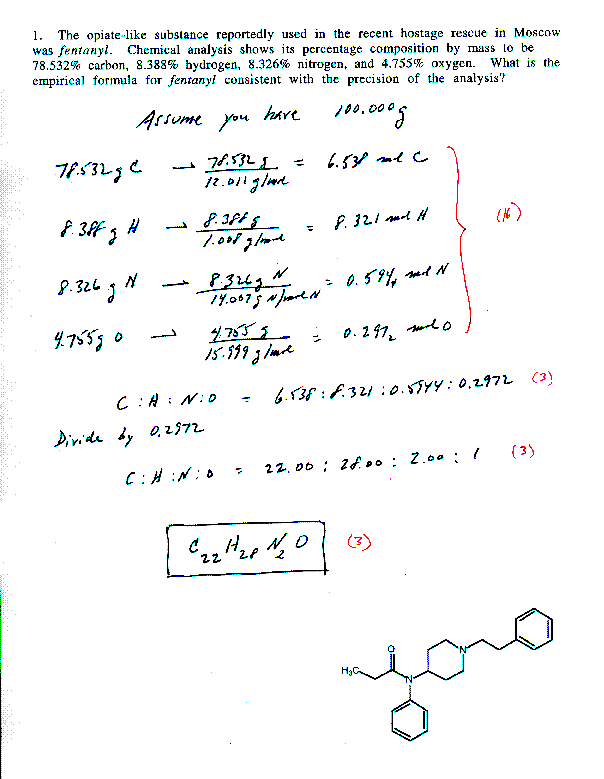 1. The opiate-like substance reportedly used in the recent hostage rescue in Moscow
was fentanyl. Chemical analysis shows its percentage composition by mass to be
78.532% carbon, 8.388% hydrogen, 8.326% nitrogen, and 4.755% oxygen. What is the
empirical formula for fentanyl consistent with the precision of the analysis?
Assume you have 100.000g
78.532g C → 78.532 g / 12.011 g/mol = 6.538 mol C
8.388 g H → 8.388 g / 1.008 g/mol = 8.321 mol H (16)
8.326 g N → 8.326g N / 14.007 g N/mole N = 0.594₄ mol N
4.755g O → 4.755 g / 15.999 g/mol = 0.297₂ mol O
C : H : N : O = 6.538 : 8.321 : 0.5944 : 0.2972 (3)
Divide by 0.2972
C : H : N : O = 22.00 : 28.00 : 2.00 : 1 (3)
C₂₂ H₂₈ N₂ O (3)
O
H₃C
N
N